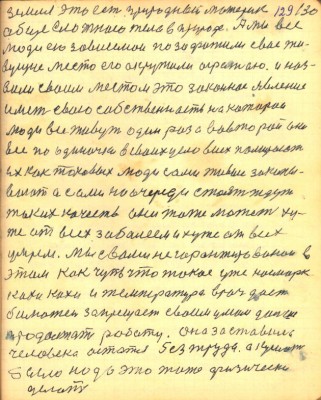 земля это ест природный материк 129/30
общесложного тела в природе. А мы все
люди ею завелемой позадржили свае жи-
вущие место его окружили оградаю. и наз-
вали своим местом это законное явление
имет свою собственность на которой
люди все живут один раз а во второй они
все по одиночки в своих условиях помирают
их как таковых люди сами живые закапы-
вают а сами на очереди стоят ждут
таких качеств они тоже может ху-
же от всех заболеем и хуже от всех
умрем. Мы с вами не гарантированы в
этом как чуть что такое уже насморк
какий и температура врач дает
билютен запрещает своим умам данным
продолжать работу. Она заставила
человека остатся без труда. а кушать
было надо это тоже физически
делать